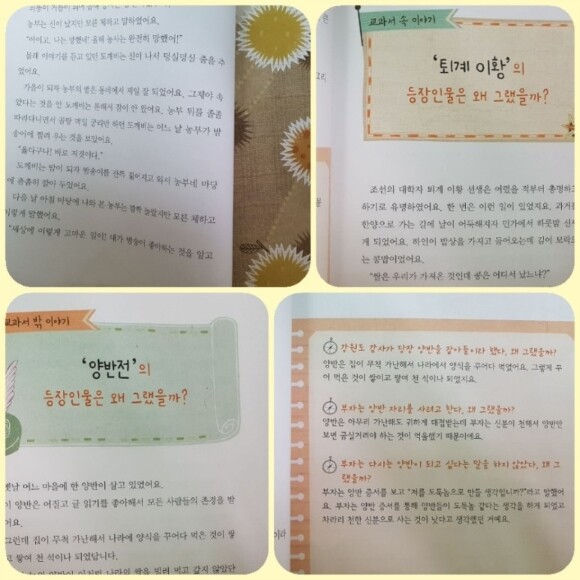 농부는 신이 났지만 모른 체하고 말하였어요.
"아이고, 나는 망했네! 올해 농사는 완전히 망했어!"
몰래 이야기를 듣고 있던 도깨비는 신이 나서 덩실덩실 춤을 추
었어요.
가을이 되자 농부의 밭은 동네에서 제일 잘 되었어요. 그제야 속
았다는 것을 안 도깨비는 분해서 잠이 안 왔어요. 농부 뒤를 졸졸
따라다니면서 골탕 먹일 궁리만 하던 도깨비는 어느 날 농부가 밤
송이에 찔려 우는 것을 보았어요.
"옳다구나! 바로 저것이다."
도깨비는 밤이 되자 밤송이를 잔뜩 짊어지고 와서 농부네 마당
에 촘촘히 깔아 두었어요.
다음 날 아침 마당에 나와 본 농부는 깜짝 놀랐지만 모른 체하고
이렇게 말했어요.
"세상에 이렇게 고마운 일이! 내가 밤송이 좋아하는 것을 알고
교과서 속 이야기
'퇴계 이황'의
등장인물은 왜 그랬을까?
조선의 대학자 퇴계 이황 선생은 어렸을 적부터 총명하
기로 유명하였어요. 한 번은 이런 일이 있었지요. 과거를
한양으로 가는 길에 날이 어두해지자 민가에서 하룻밤 신
게 되었어요. 하인이 밥상을 가지고 들어오는데 김이 모락
는 콩밥이었어요.
"쌀은 우리가 가져온 것인데 콩은 어디서 났느냐?"
교과서 밖 이야기
'양반전'의
등장인물은 왜 그랬을까?
옛날 어느 마을에 한 양반이 살고 있었어요.
이 양반은 어질고 글 읽기를 좋아해서 모든 사람들의 존경을 받
어요.
그런데 집이 무척 가난해서 나라에 양식을 꾸어다 먹은 것이 쌓
고 쌓여 천 석이나 되었답니다.
강원도 감사가 당장 양반을 잡아들이라 했다. 왜 그랬을까?
양반은 집이 무척 가난해서 나라에서 양식을 꾸어다 먹었어요. 그렇게 꾸
어 먹은 것이 쌓이고 쌓여 천 석이나 되었지요.
부자는 양반 자리를 사려고 한다. 왜 그랬을까?
양반은 아무리 가난해도 귀하게 대접받는데 부자는 신분이 천해서 양반만
보면 굽실거려야 하는 것이 억울했기 때문이에요.
부자는 다시는 양반이 되고 싶다는 말을 하지 않았다. 왜 그
랬을까?
부자는 양반 증서를 보고 "저를 도둑놈으로 만들 생각입니까?"라고 말했어
요. 부자는 양반 증서를 통해 양반들이 도둑놈 같다는 생각을 하게 되었고
차라리 천한 신분으로 사는 것이 낫다고 생각했던 거예요.